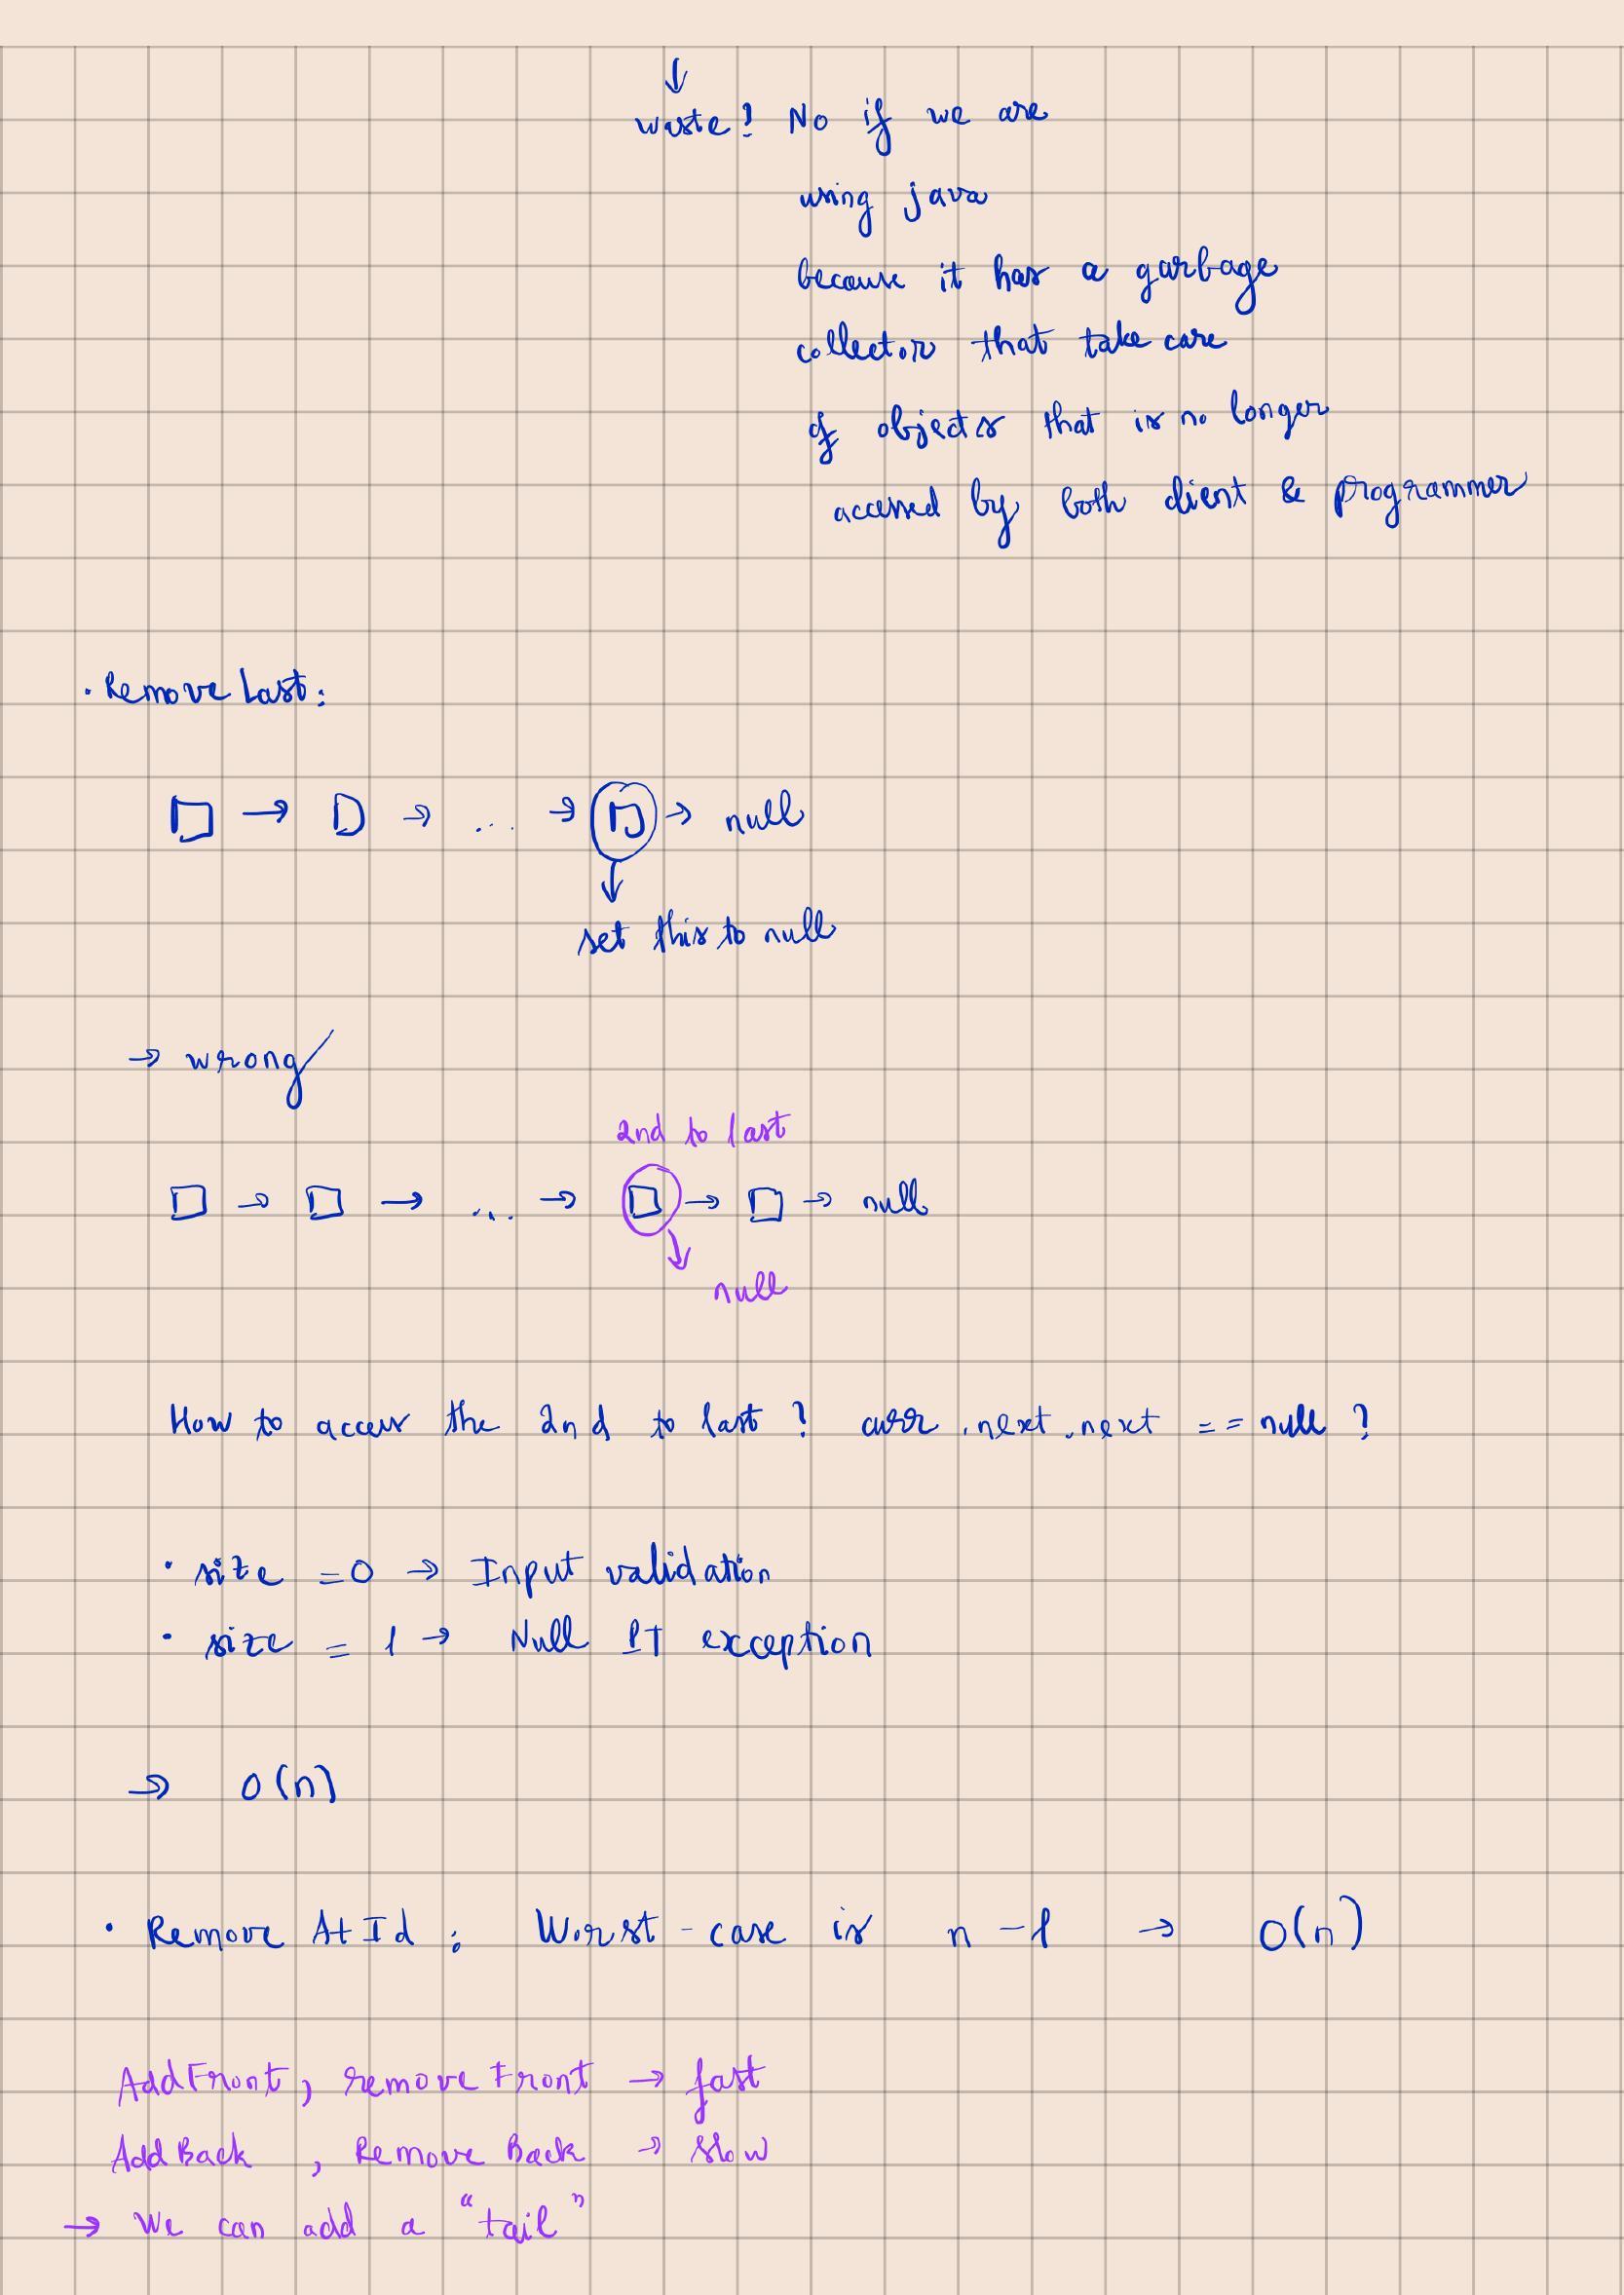 ↓
waste? No if we are
using java
because it has a garbage
collector that take care
of objects that is no longer
accessed by both client & programmer
• Remove Last:
□ → □ → ... → □ → null
↓
set this to null
→ wrong
2nd to last
□ → □ → ... → □ → □ → null
↓
null
How to access the 2nd to last? curr.next.next == null?
• size = 0 → Input validation
• size = 1 → Null PT exception
→ O(n)
• Remove AtId: Worst-case is n-1 → O(n)
AddFront, removeFront → fast
AddBack, Remove Back → slow
→ We can add a "tail"